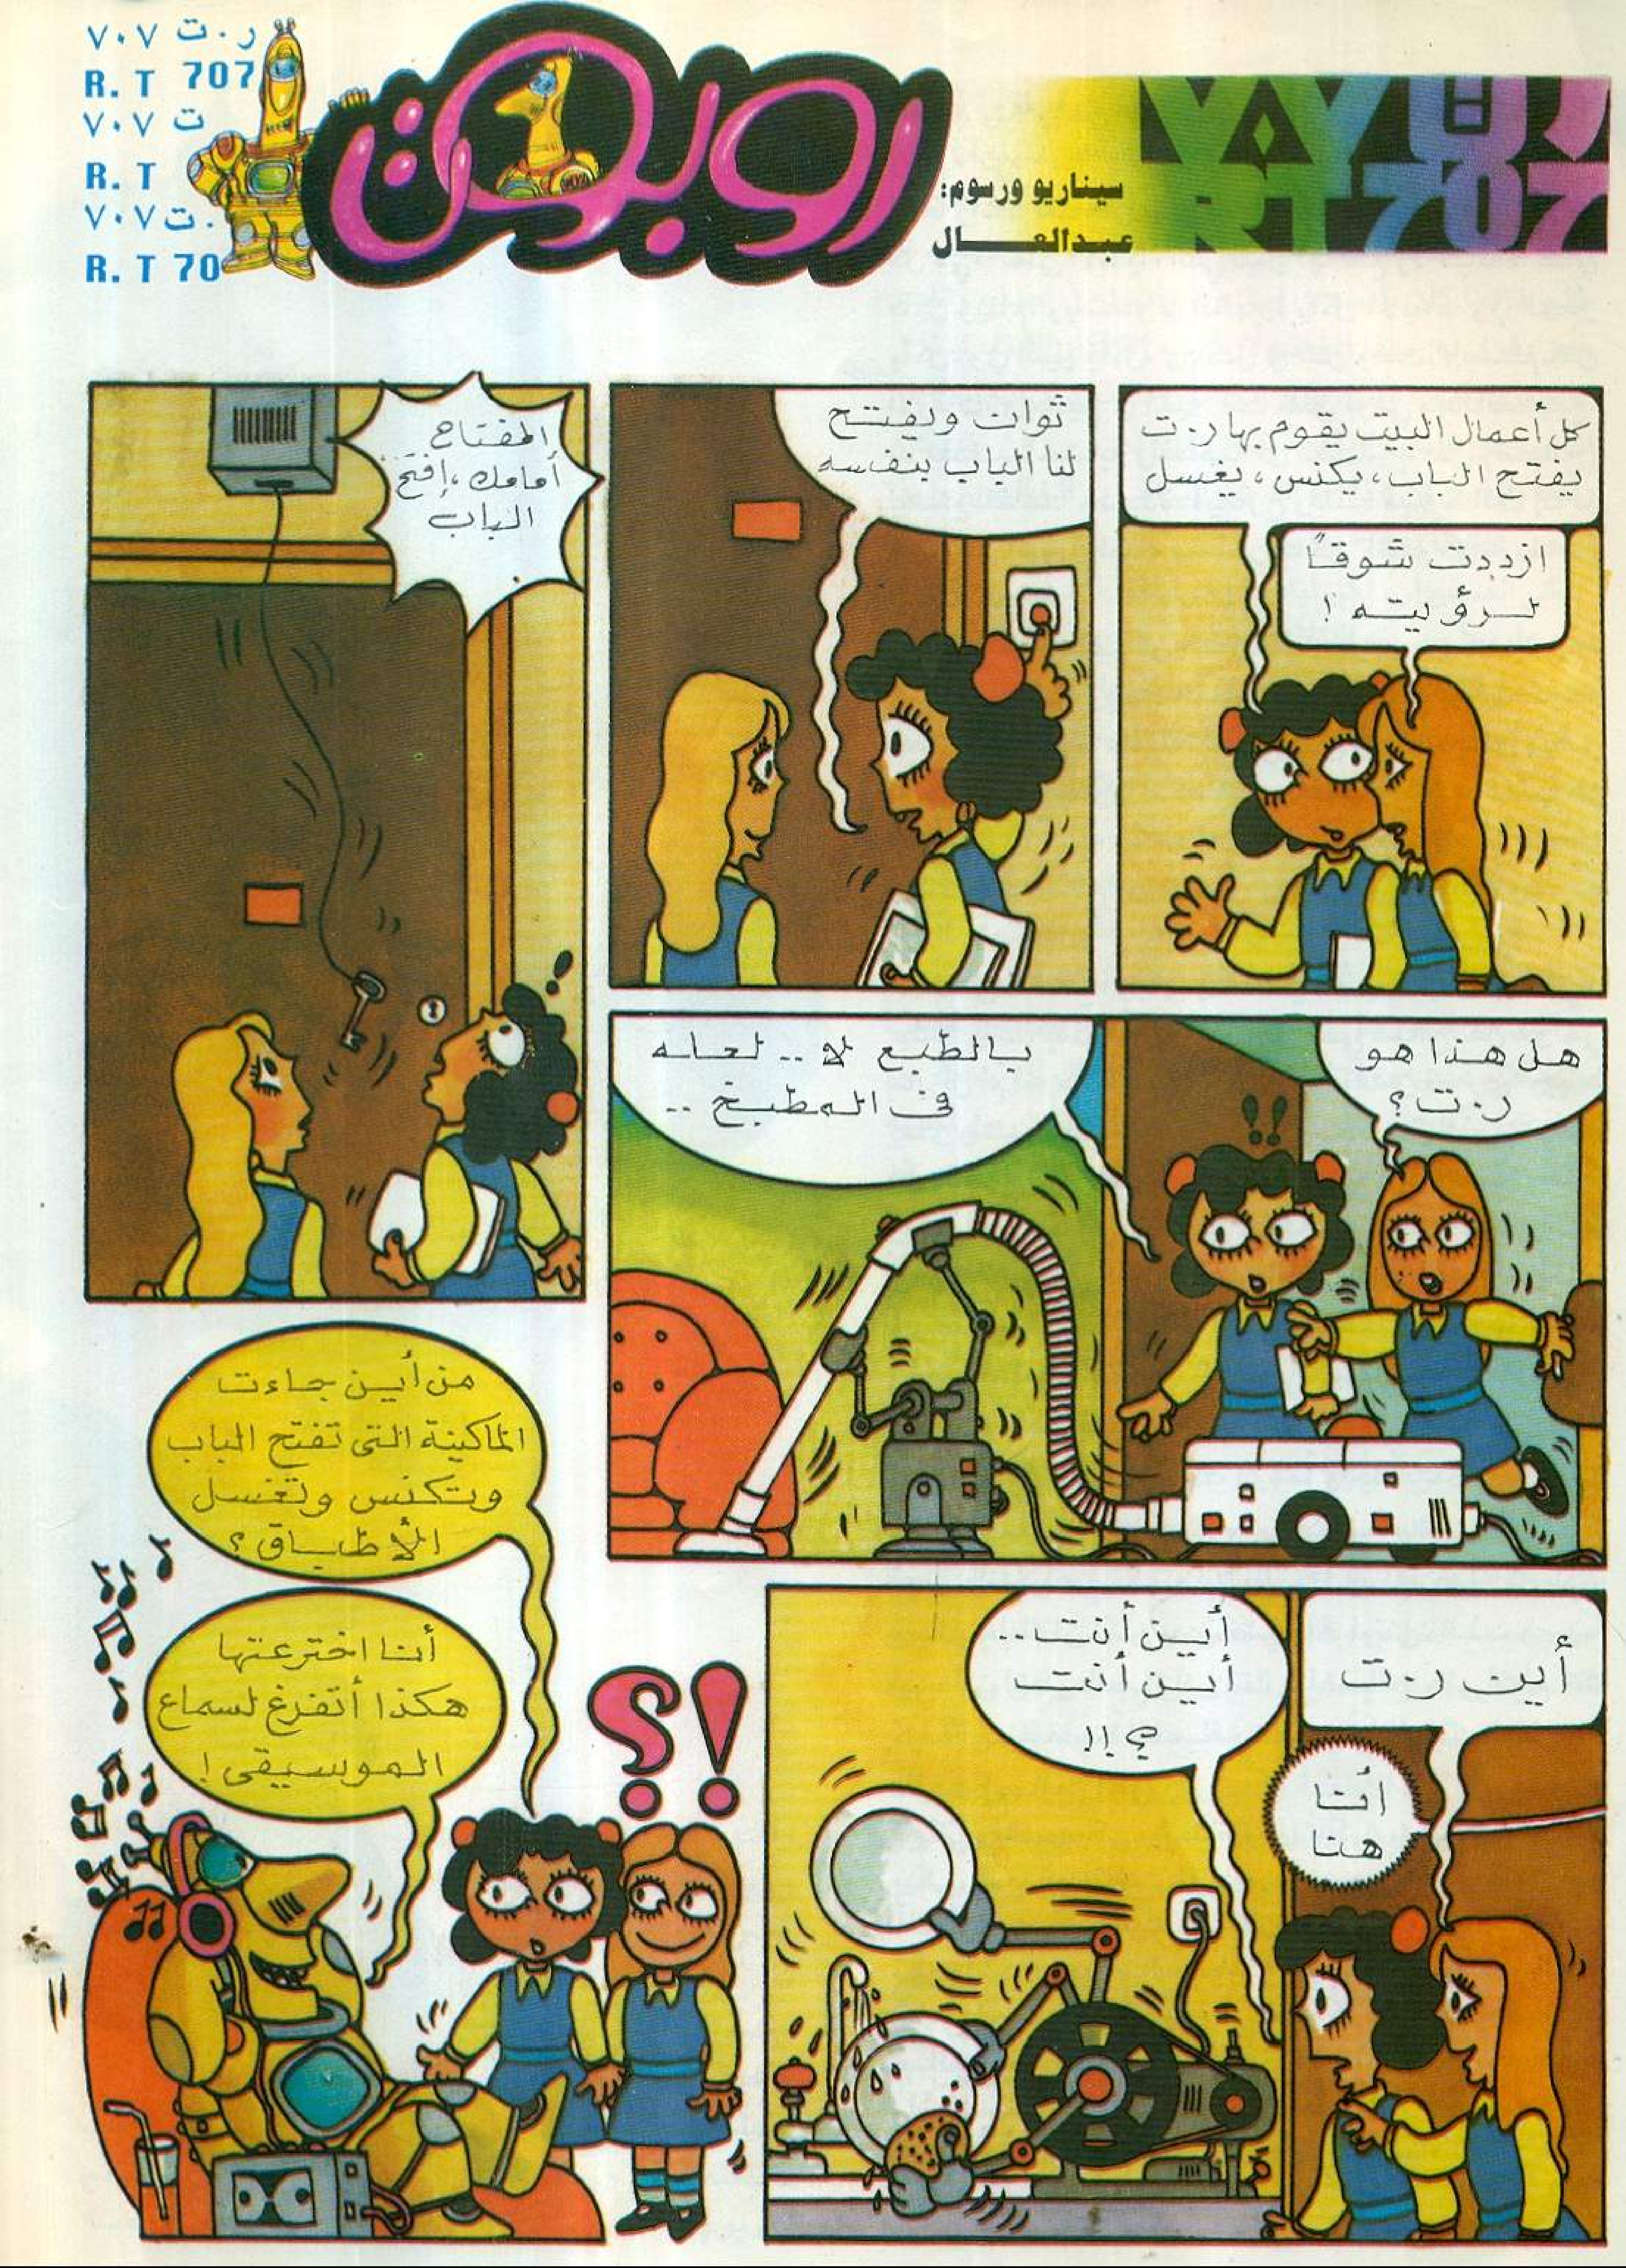 ر.ت ٧٠٧
R. T 707
ت ٧٠٧
R. T
ت. ٧٠٧
R. T 70
روبوت
سيناريو ورسوم:
عبدالعال
ر.ت ٧٠٧
RT 707
كل أعمال البيت يقوم بها ر.ت
يفتح الباب، يكنس، يغسل
ازددت شوقاً
لرؤيته !
ثوان ويفتح
لنا الباب بنفسه
المفتاح
أمامك، إفتح
الباب
هل هذا هو
ر.ت؟
بالطبع لا .. لعله
فى المطبخ ..
أين ر.ت
أنا
هنا
أين أنت..
أين أنت
؟ !!
من أين جاءت
الماكينة التى تفتح الباب
وتكنس وتغسل
الأطباق؟
أنا اخترعتها
هكذا أتفرغ لسماع
الموسيقى !
؟!